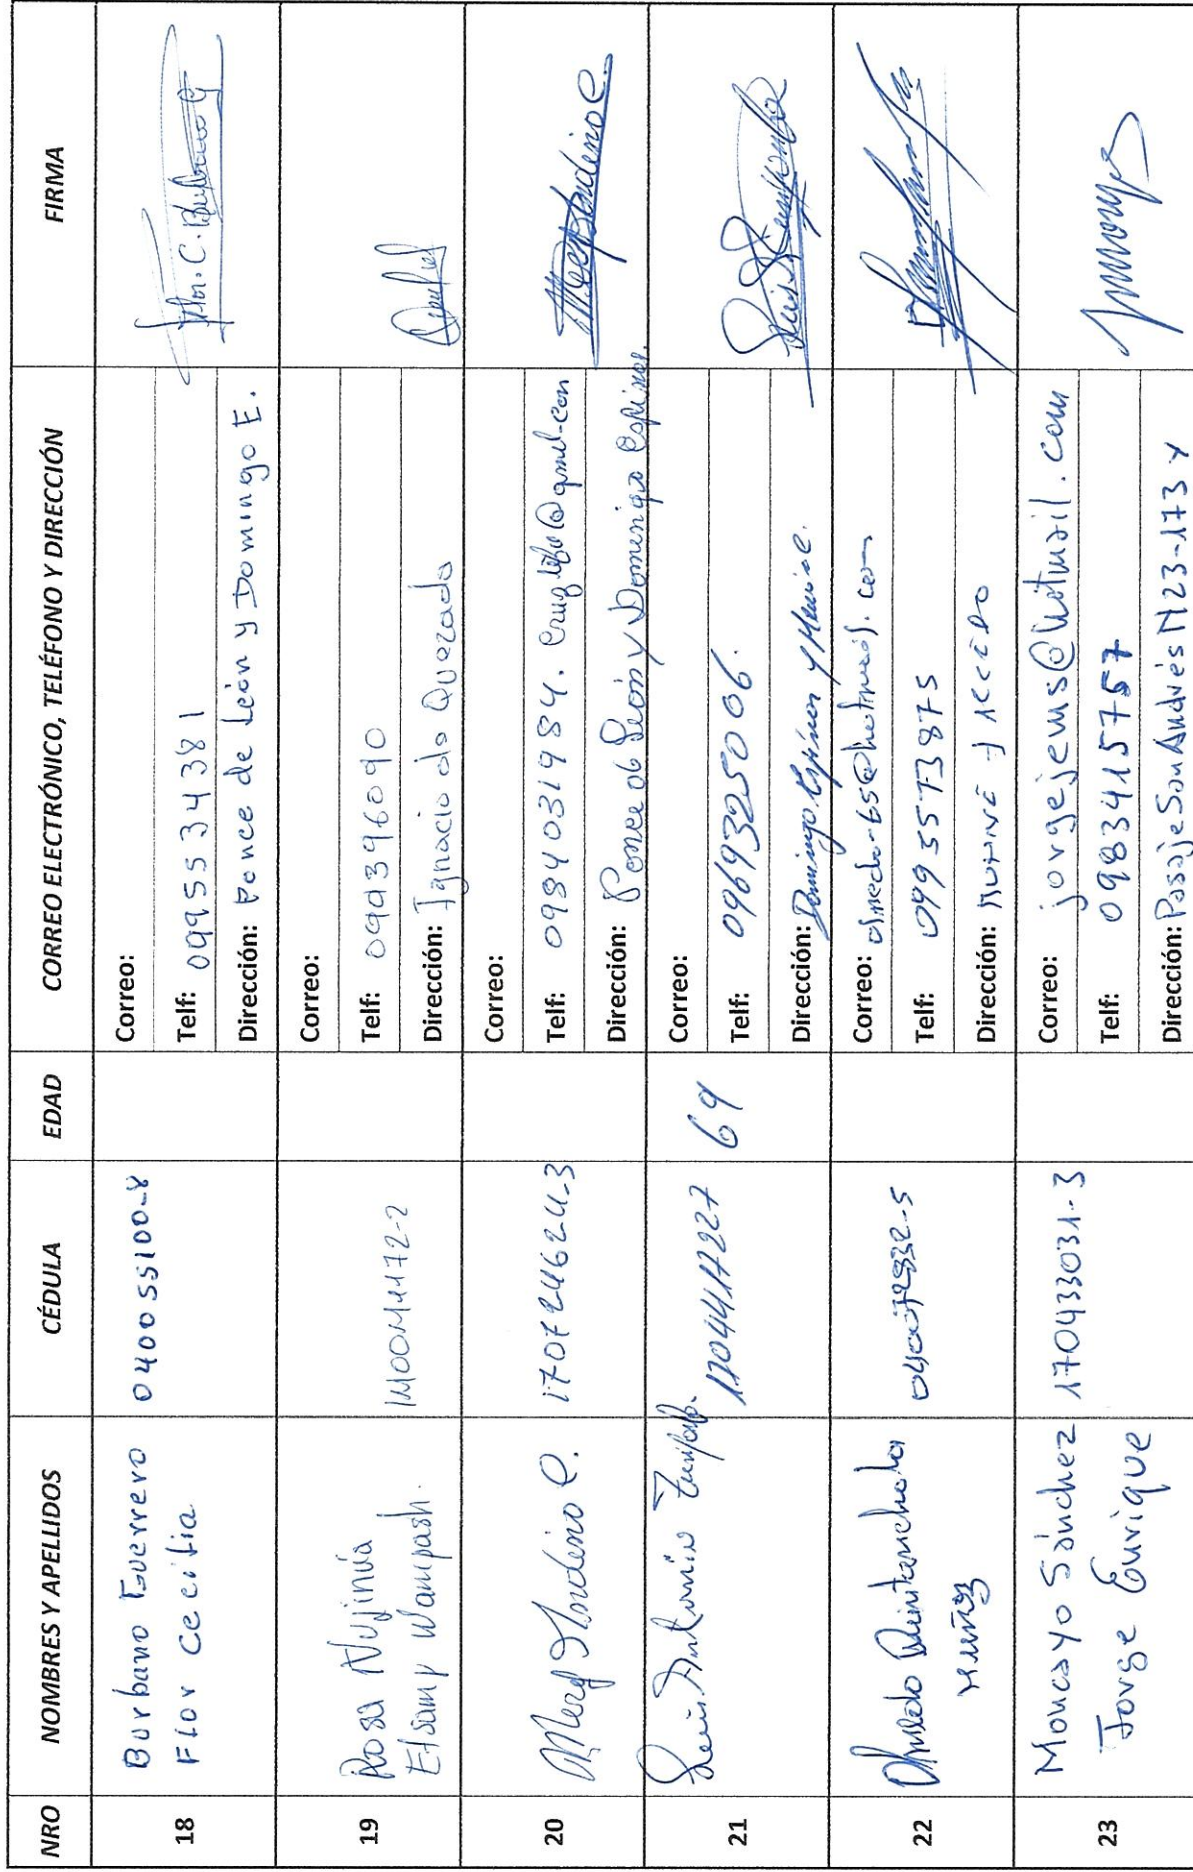 NRO NOMBRES Y APELLIDOS CÉDULA EDAD CORREO ELECTRÓNICO, TELÉFONO Y DIRECCIÓN FIRMA
18
Burbano Guerrero
Flor Cecilia
040055100-8
Correo:
Telf: 0995534381
Dirección: Ponce de León y Domingo E.
Flor. C. Burbano G
19
Rosa Nujinua
Elsamy Wampash.
Correo:
Telf: 0991396090
Dirección: Ignacio de Quezada
20
170724624-3
Correo:
Telf: 0984031984.
Dirección: Ponce de León y Domingo Espinar.
21
Luis Antonio
1704417227
69
Correo:
Telf: 0969325006.
Dirección: Domingo Espinar y
22
Olmedo Quintanchala
Muñoz
Correo: olmedo-65@hotmail.com
Telf: 0995573875
Dirección:
23
Moncayo Sánchez
Jorge Enrique
170433031-3
Correo: jorgejems@hotmail.com
Telf: 0983415757
Dirección: Pasaje San Andrés N23-173 y